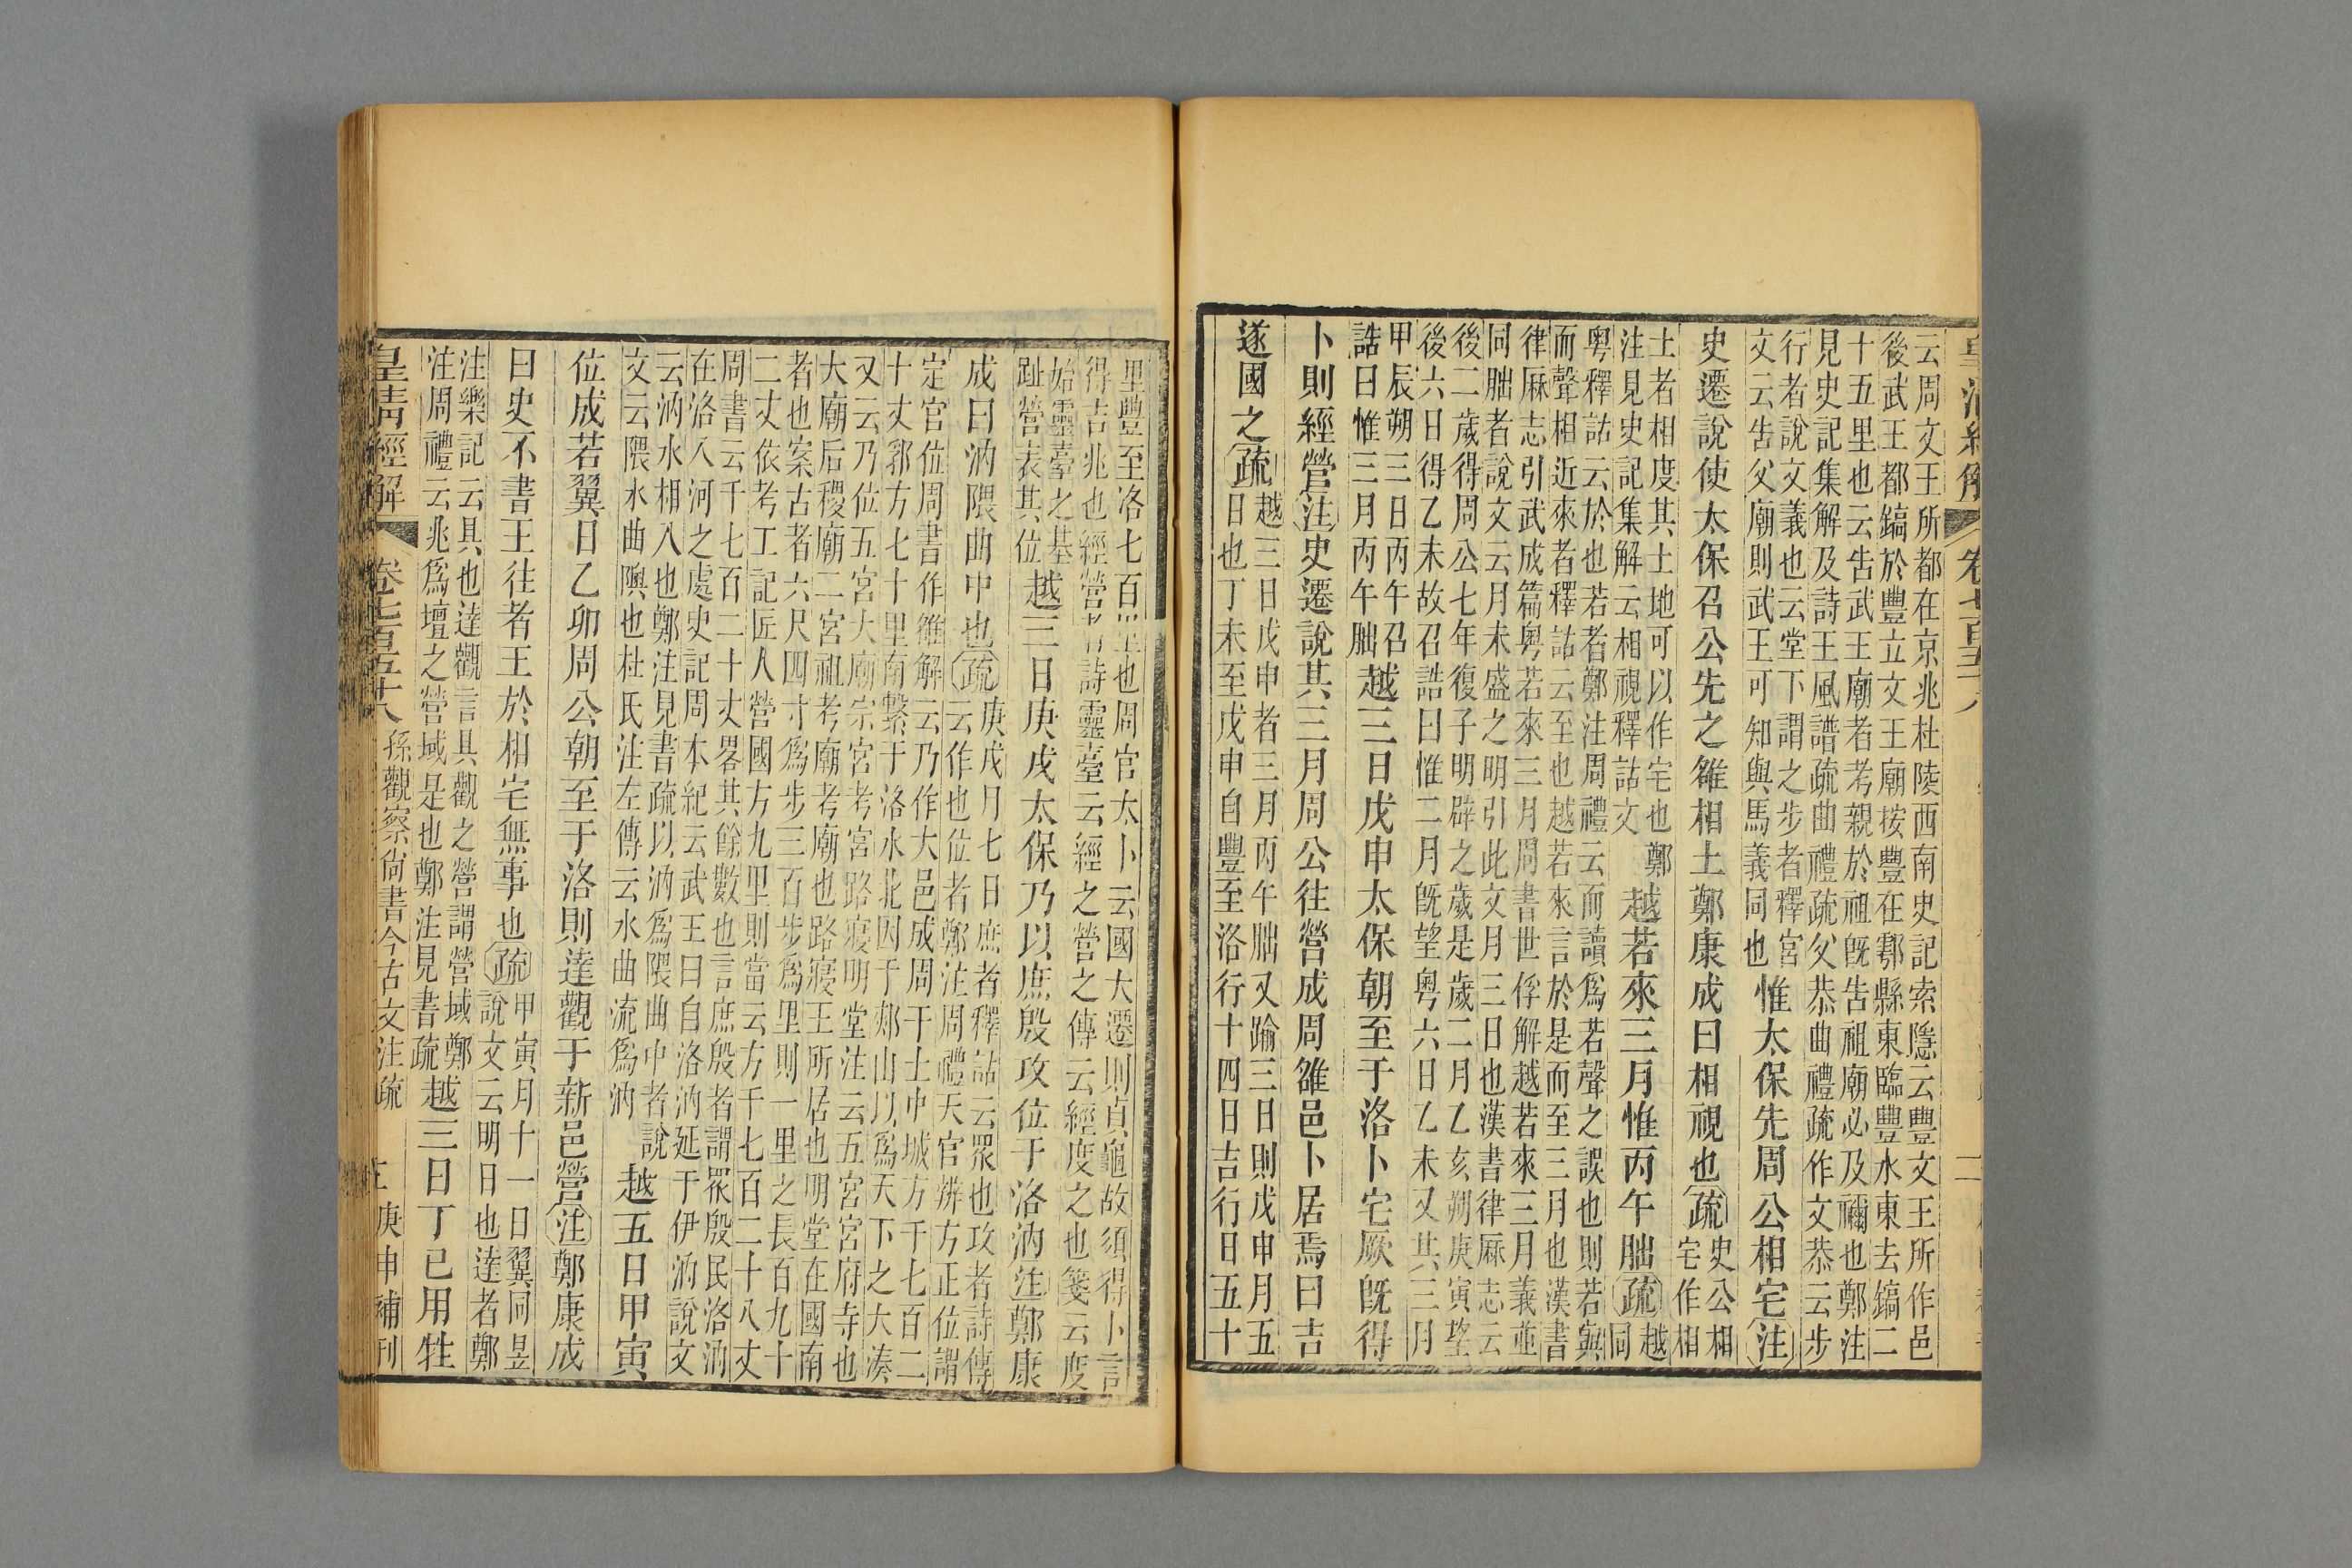 云周文王所都在京兆杜陵西南史記索隱云豐文王所作邑
後武王都鎬於豐立文王廟按豐在鄠縣東臨豐水東去鎬二
十五里也云告武王廟者考親於祖旣告祖廟必及禰也鄭注
見史記集解及詩王風譜疏曲禮疏父恭曲禮疏作文恭云步
行者說文義也云堂下謂之步者釋宮
文云告父廟則武王可知與馬義同也
惟太保先周公相宅注
史遷說使太保召公先之雒相土鄭康成曰相視也疏
史公相
宅作相
土者相度其土地可以作宅也鄭
注見史記集解云相視釋詁文
越若來三月惟丙午朏疏
越
同
粵釋詁云於也若者鄭注周禮云而讀爲若聲之誤也則若與
而聲相近來者釋詁云至也越若來言於是而至三月也漢書
律厤志引武成篇粵若來三月周書世俘解越若來三月義並
同朏者說文云月未盛之明引此文月三日也漢書律厤志云
後二歲得周公七年復子明辟之歲是歲二月乙亥朔庚寅望
後六日得乙未故召誥曰惟二月旣望粵六日乙未又其三月
甲辰朔三日丙午召
誥曰惟三月丙午朏
越三日戊申太保朝至于洛卜宅厥旣得
卜則經營注史遷說其三月周公往營成周雒邑卜居焉曰吉
遂國之疏
越三日戊申者三月丙午朏又踰三日則戊申月五
日也丁未至戊申自豐至洛行十四日吉行日五十
里豐至洛七百里也周官太卜云國大遷則貞龜故須得卜言
得吉兆也經營者詩靈臺云經之營之傳云經度之也箋云度
始靈臺之基
趾營表其位
越三日庚戌太保乃以庶殷攻位于洛汭注鄭康
成曰汭隈曲中也疏
庚戌月七日庶者釋詁云眾也攻者詩傳
云作也位者鄭注周禮天官辨方正位謂
定宮位周書作雒解云乃作大邑成周于土中城方千七百二
十丈郛方七十里南繫于洛水北因于郟山以爲天下之大湊
又云乃位五宮大廟宗宮考宮路寢明堂注云五宮宮府寺也
大廟后稷廟二宮祖考廟考廟也路寢王所居也明堂在國南
者也案古者六尺四寸爲步三百步爲里則一里之長百九十
二丈依考工記匠人營國方九里則當云方千七百二十八丈
周書云千七百二十丈畧其餘數也言庶殷者謂眾殷民洛汭
在洛入河之處史記周本紀云武王曰自洛汭延于伊汭說文
云汭水相入也鄭注見書疏以汭爲隈曲中者說
文云隈水曲隩也杜氏注左傳云水曲流爲汭
越五日甲寅
位成若翼日乙卯周公朝至于洛則達觀于新邑營注鄭康成
曰史不書王往者王於相宅無事也疏
甲寅月十一日翼同昱
說文云明日也達者鄭
注樂記云具也達觀言具觀之營謂營域鄭
注周禮云兆爲壇之營域是也鄭注見書疏
越三日丁巳用牲
皇清經解
卷七百五十八
孫觀察尙書今古文注疏
庚申補刊